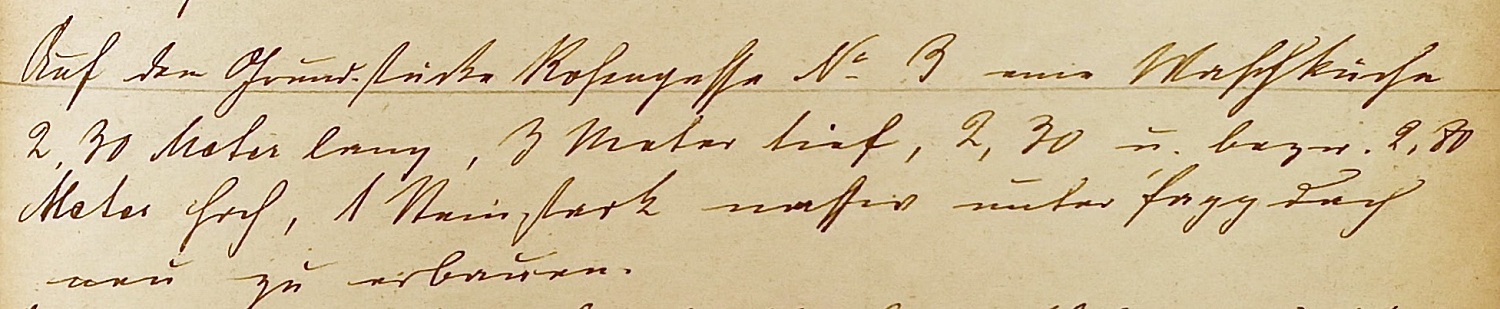 Auf dem Grundstücke Rosengasse No 3 eine Waschküche
2,30 Meter lang, 3 Meter tief, 2,30 u. bezw. 2,80
Meter hoch, 1 Stein stark massiv unter Pappdach
neu zu erbauen.